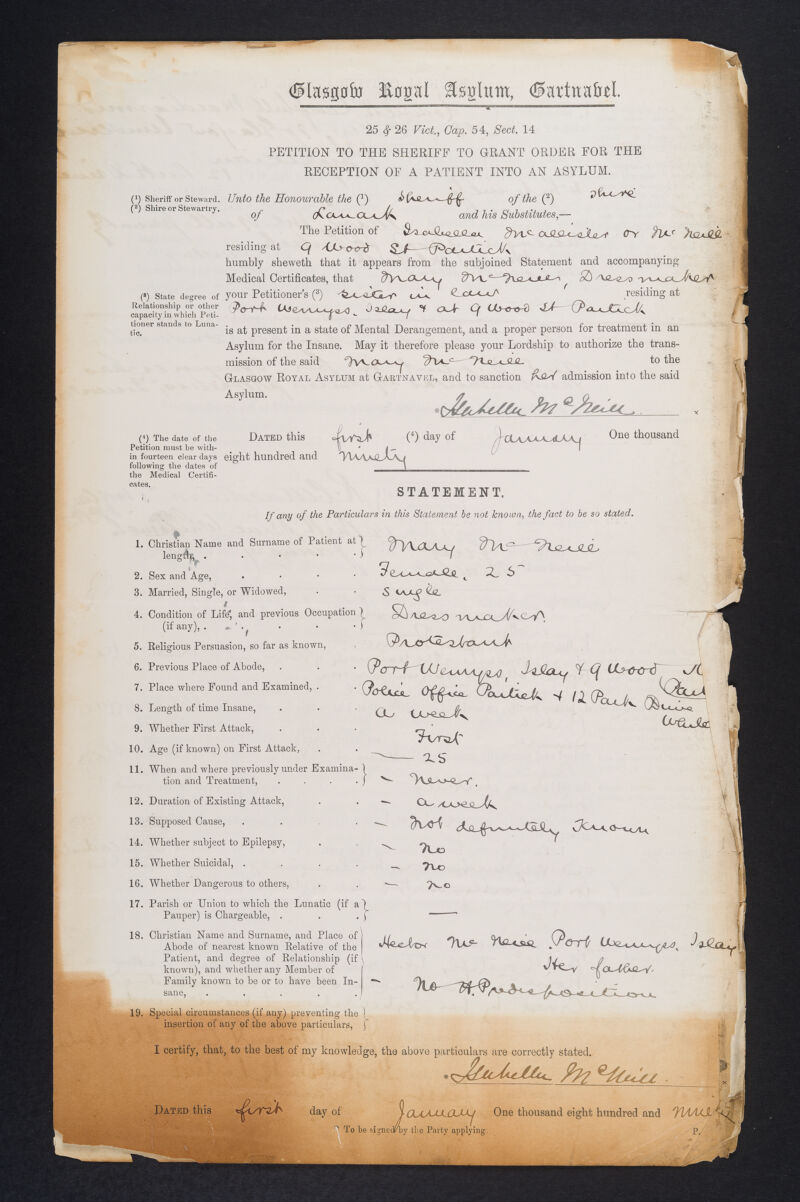 Glasgow Royal Asylum, Gartnabel.
25 & 26 Vict., Cap. 54, Sect. 14
PETITION TO THE SHERIFF TO GRANT ORDER FOR THE
RECEPTION OF A PATIENT INTO AN ASYLUM.
(1) Sheriff or Steward.
(2) Shire or Stewartry.
Unto the Honourable the (1) Sheriff of the (2) Shire
of Lanark and his Substitutes,—
The Petition of Isabella McAllister or McNeill
residing at 9 Wood St Partick
humbly sheweth that it appears from the subjoined Statement and accompanying
Medical Certificates, that Mary McNeill, Dressmaker
(3) State degree of
Relationship or other
capacity in which Peti-
tioner stands to Luna-
tic.
your Petitioner's (3) Sister in law residing at
Port Wemyss, Islay & at 9 Wood St Partick
is at present in a state of Mental Derangement, and a proper person for treatment in an
Asylum for the Insane. May it therefore please your Lordship to authorize the trans-
mission of the said Mary McNeill to the
GLASGOW ROYAL ASYLUM at GARTNAVEL, and to sanction her admission into the said
Asylum.
Isabella McNeill
(4) The date of the
Petition must be with-
in fourteen clear days
following the dates of
the Medical Certifi-
cates.
DATED this first (4) day of January One thousand
eight hundred and ninety
STATEMENT.
If any of the Particulars in this Statement be not known, the fact to be so stated.
1. Christian Name and Surname of Patient at
length, . . . . . Mary McNeill
2. Sex and Age, . . . . Female, 25
3. Married, Single, or Widowed, . . Single
4. Condition of Life, and previous Occupation
(if any), . . . . . Dressmaker.
5. Religious Persuasion, so far as known, . Protestant
6. Previous Place of Abode, . . . Port Wemyss, Islay & 9 Wood St
Part
7. Place where Found and Examined, . . Police Office Partick & 12 Park Drive
8. Length of time Insane, . . . a week
9. Whether First Attack, . . . First
10. Age (if known) on First Attack, . . — 25
11. When and where previously under Examina-
tion and Treatment, . . . . — Never.
12. Duration of Existing Attack, . . — a week
13. Supposed Cause, . . . . — Not definitely Known
14. Whether subject to Epilepsy, . . — No
15. Whether Suicidal, . . . . — No
16. Whether Dangerous to others, . . — No
17. Parish or Union to which the Lunatic (if a
Pauper) is Chargeable, . . . —
18. Christian Name and Surname, and Place of
Abode of nearest known Relative of the
Patient, and degree of Relationship (if
known), and whether any Member of
Family known to be or to have been In-
sane, . . . . . .
Hector McNeill. Port Wemyss. Islay
Her father.
— No H. Predisposition
19. Special circumstances (if any) preventing the
insertion of any of the above particulars,
I certify, that, to the best of my knowledge, the above particulars are correctly stated.
Isabella McNeill.
DATED this first day of January One thousand eight hundred and ninety
To be signed by the Party applying
P.